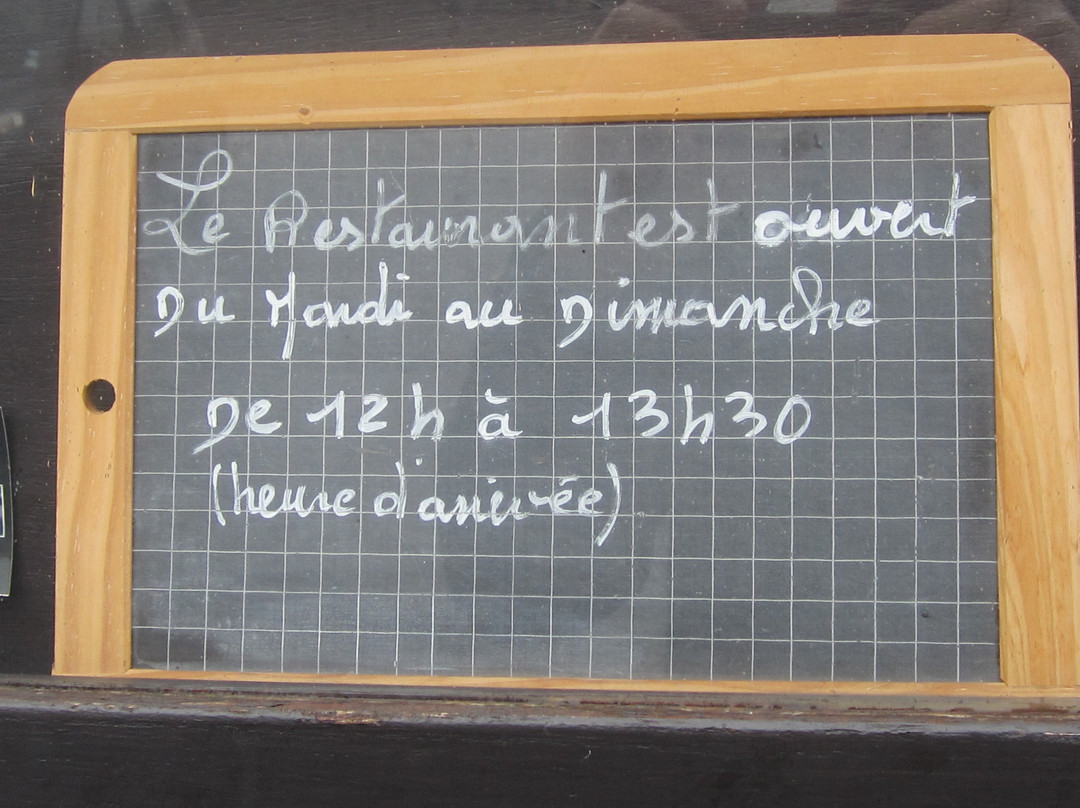 Le Restaurant est ouvert
Du Mardi au Dimanche
De 12h à 13h30
(heure d'arrivée)